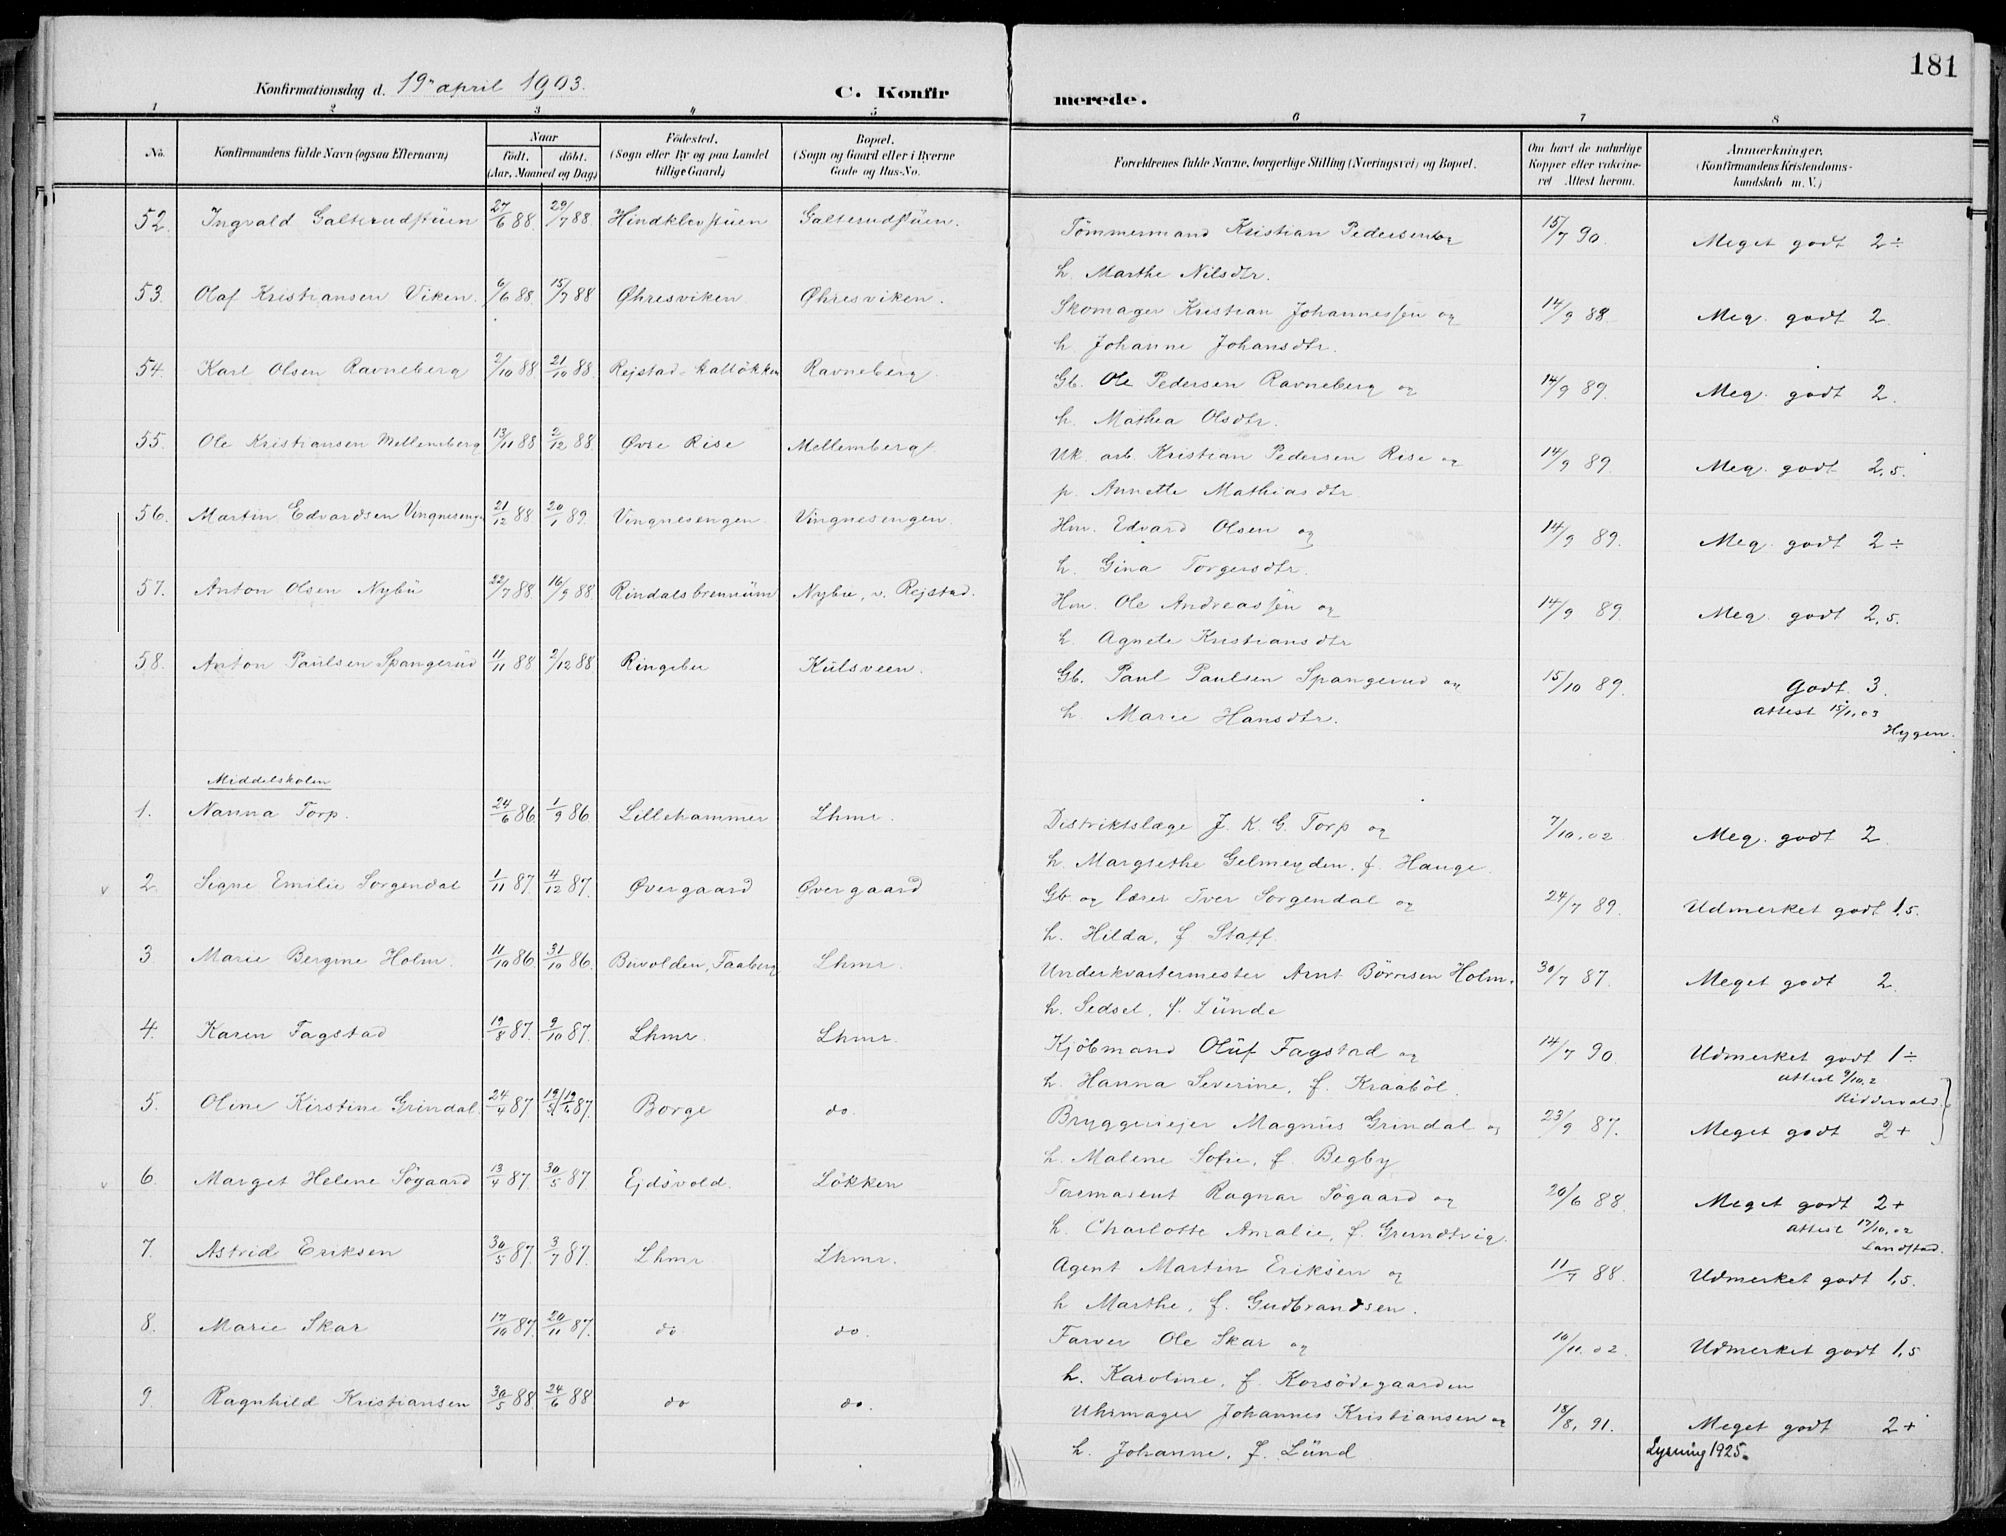 181
Konfirmationsdag d. 19de april 1903.
C. Konfirmerede.
1 2 3 4 5 6 7 8
No. Konfirmandens fulde Navn (ogsaa Efternavn) Naar født. døbt. (Aar, Maaned og Dag) Fødested. (Sogn eller By og paa Landet tillige Gaard) Bopæl. (Sogn og Gaard eller i Byerne Gade og Hus-No. Forældrenes fulde Navne, borgerlige Stilling (Næringsvei) og Bopæl. Om havt de naturlige Kopper eller vakcineret Attest herom. Anmærkninger. (Konfirmandens Kristendomskundskab m. V.)
52. Ingvald Galterudstüen 27/6 88 29/7 88 Hindklevstüen Galterudstüen. Tömmermand Kristian Pedersen og 15/7 90. Meget godt 2÷
h. Marthe Nilsdtr.
53. Olaf Kristiansen Viken. 6/6 88. 15/7 88 Øhresviken Øhresviken. Skomager Kristian Johannessen og 14/9 88 Meg. godt 2.
h Johanne Johansdtr.
54. Karl Olsen Ravneberg 2/10 88. 21/10 88. Rejstad-kalløkken Ravneberg. Gb. Ole Pedersen Ravneberg og 14/9 89. Meg. godt 2.
h. Mathea Olsdtr.
55. Ole Kristiansen Mellemberg 13/11 88 2/12 88 Øvre Rise Mellemberg. Uk. arb. Kristian Pedersen Rise og 14/9 89. Meg. godt 2,5.
p. Annette Mathiasdtr
56. Martin Edvardsen Vingnesengen 21/12 88 20/1 89. Vingnesengen. Vingnesengen. Hm. Edvard Olsen og 14/9 89. Meg. godt 2÷
h. Gina Torgersdtr.
57. Anton Olsen Nybü 22/7 88. 16/9 88. Rindalsbrennüm Nybu, v. Rejstad. Hm. Ole Andreassen og 14/9 89 Meg. godt 2,5.
h. Agnete Kristiansdtr
58. Anton Paulsen Spangerüd 11/11 88 2/12 88 Ringebu Külsveen. Gb. Paul Paulsen Spangerud og 15/10 89. Godt. 3.
h Marie Hansdtr. attest 15/1,03
Hygen.
Middelskolen
1. Nanna Torp. 24/6 86 1/9 86 Lillehammer Lhmr. Distriktslæge J. K. G. Torp og 7/10.02 Meg. godt 2
h. Margrethe Gelmeyden, f. Hauge.
2. Signe Emilie Sorgendal 1/11 87. 4/12 87. Øvergaard Øvergaard Gb og lærer Iver Sorgendal og 24/7 89. Udmerket godt 1,5.
h. Hilda, f Staff.
3. Marie Bergine Holm. 11/10 86. 31/10 86. Buvolden, Faaberg Lhmr. Underkvartermester Arnt Børresen Holm. 30/7 87. Meget godt 2.
h. Sedsel, f. Lünde
4. Karen Fagstad 19/8 87. 9/10 87. Lhmr. Lhmr. Kjöbmand Olüf Fagstad og 14/7 90 Udmerket godt 1÷
h. Hanna Severine, f. Kraaböl. attest 9/10.2
Riddervold.
5. Oline Kirstine Grindal. 24/4 87 19/5 | 19/6 87. Borge do. Bryggeriejer Magnüs Grindal og 23/9 87. Meget godt 2+
h. Malene Sofie, f. Begby
6. Marget Helene Sögaard 13/4 87. 30/5 87. Ejdsvold. Lökken Ragnar Sögaard og 20/6 88. Meget godt 2+
h. Charlotte Amalie, f. Grundtvig. attest 17/10.02
Landstad.
7. Astrid Eriksen 30/5 87. 3/7 87. Lhmr Lhmr. Agent Martin Eriksen og 11/7 88. Udmerket godt 1,5.
h Marthe, f. Gudbrandsen.
8. Marie Skar 17/10 87. 20/11 87. do do. Farver Ole Skar og 10/11.02. Udmerket godt 1,5
h. Karoline, f. Korsödegaarden
9. Ragnhild Kristiansen 30/5 88. 24/6 88 do do. Uhrmager Johannes Kristiansen og 18/8,91. Meget godt 2+
h. Johanne, f. Lünd Lysning 1925.